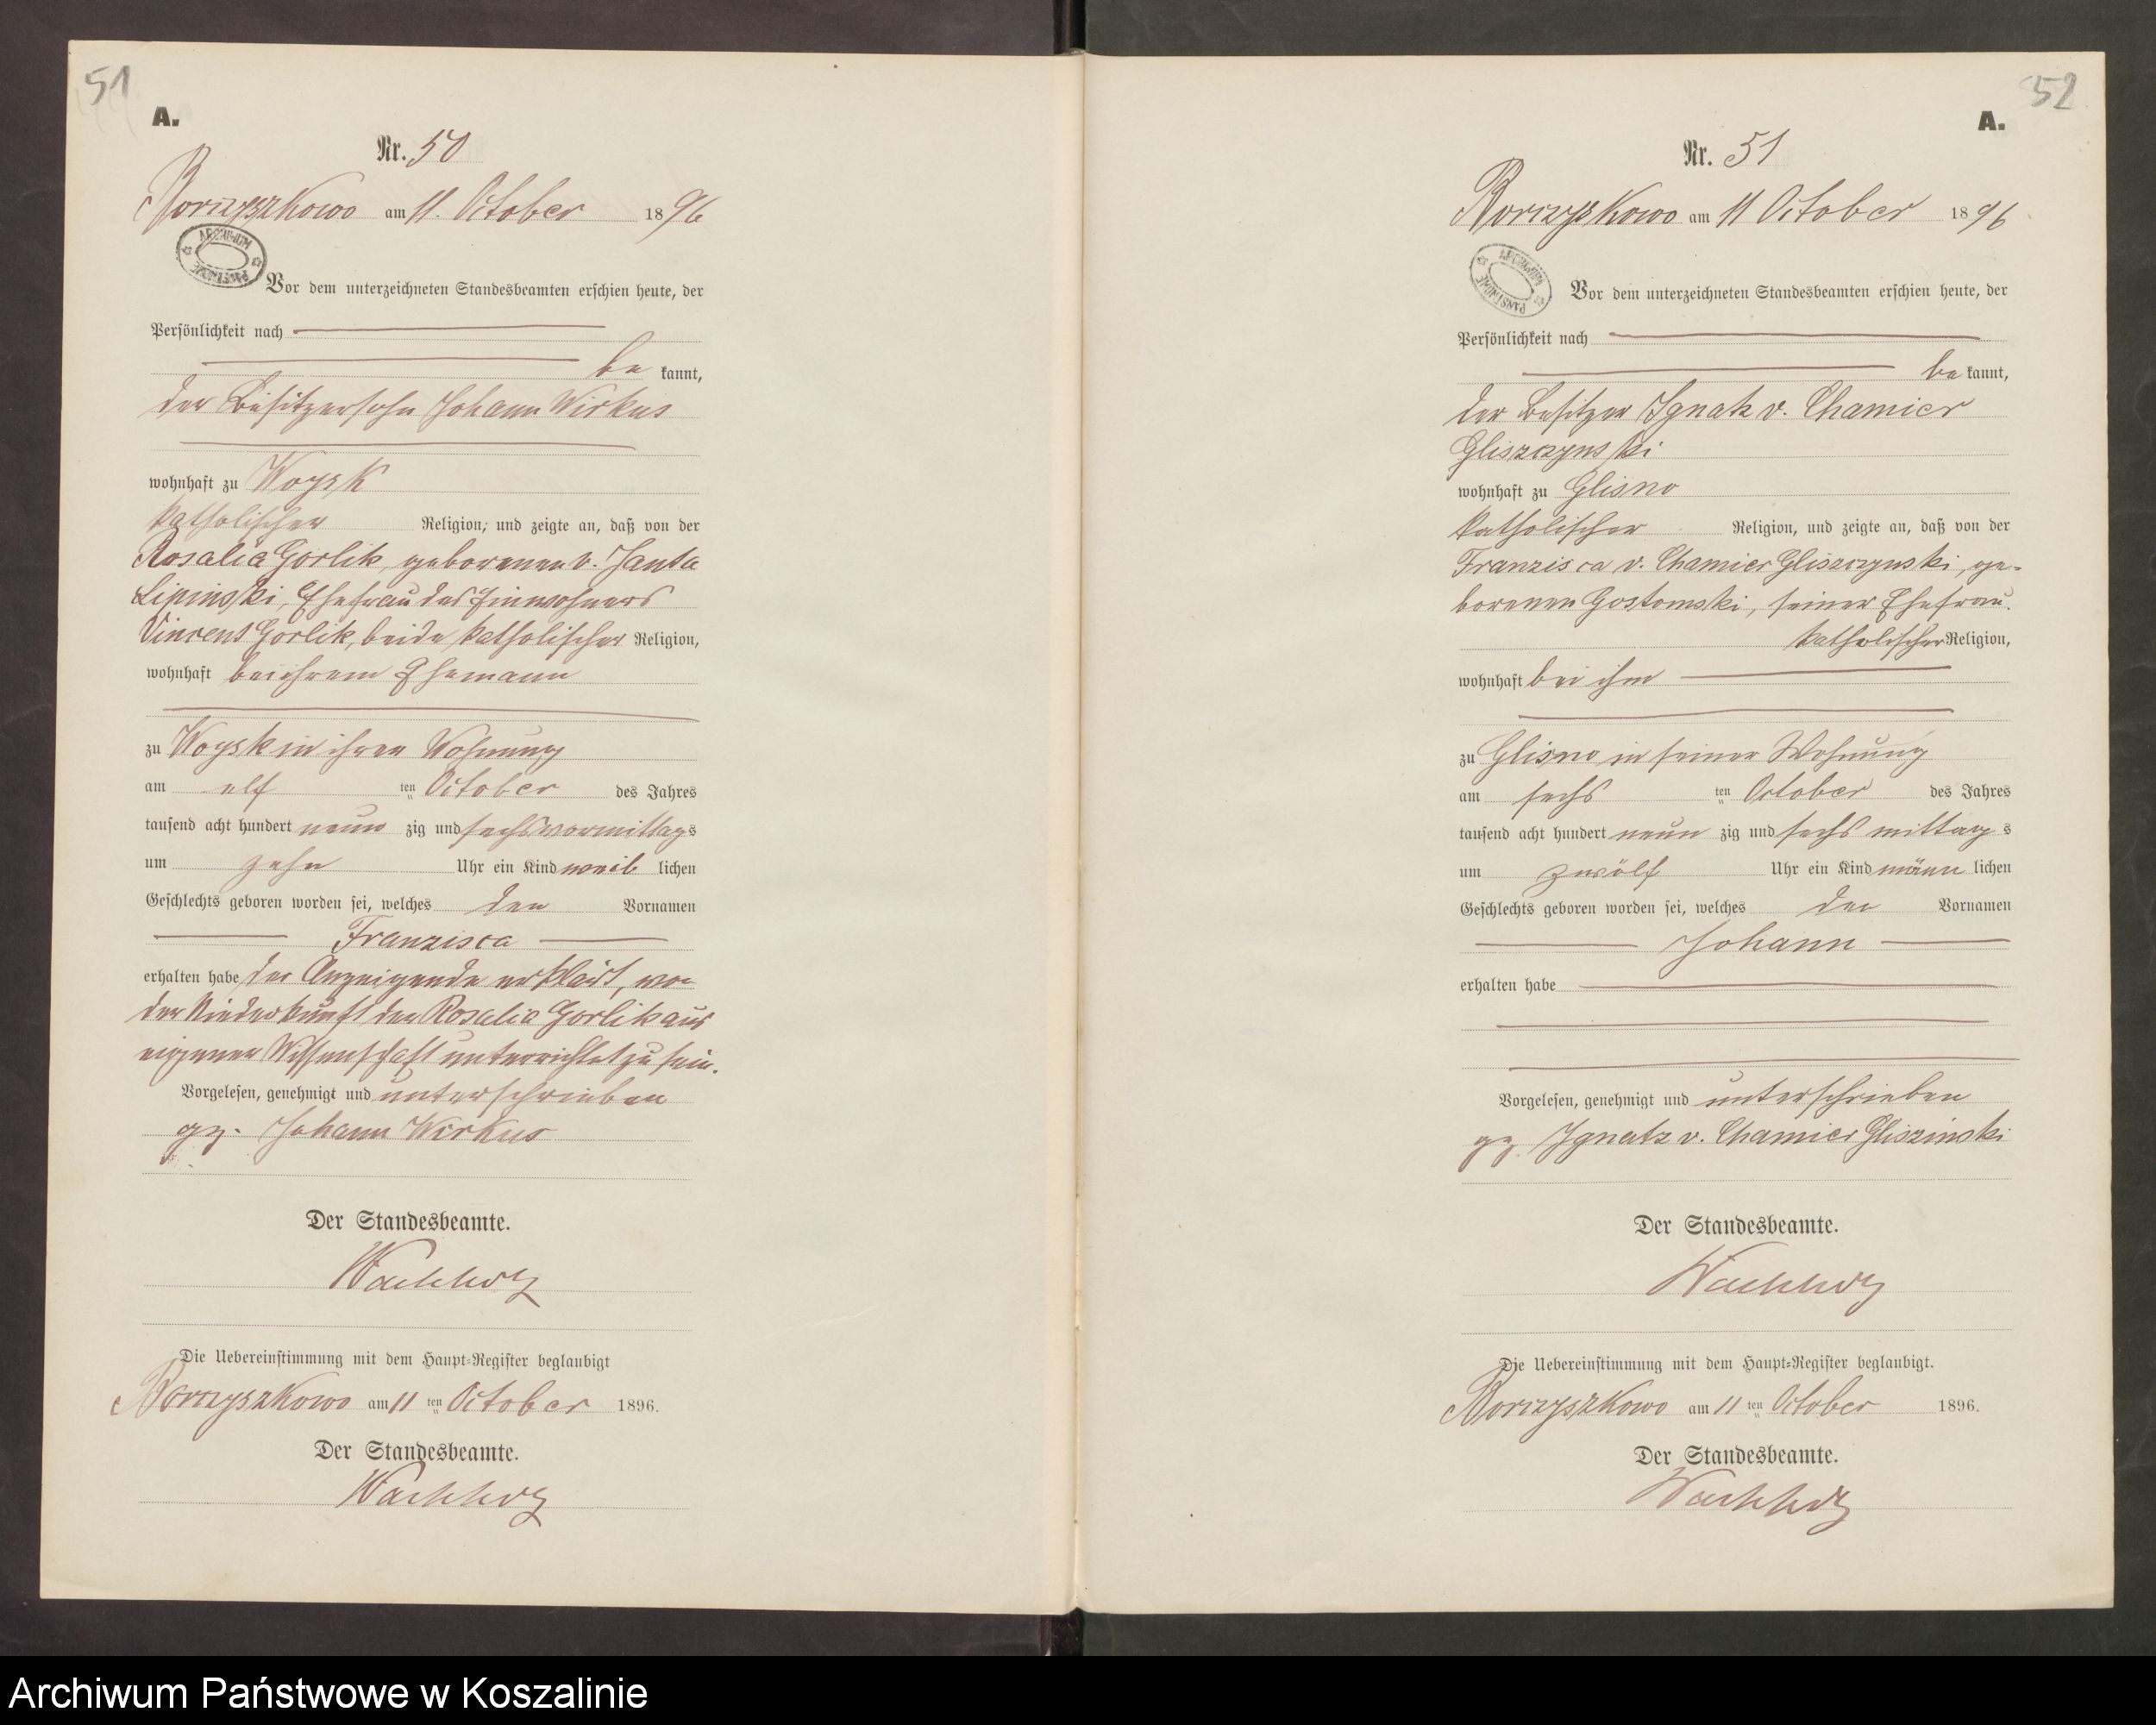 51
A.
Nr. 50
Borzyszkowo am 11. October 1896
ARCHIWUM PAŃSTWOWE
Vor dem unterzeichneten Standesbeamten erschien heute, der
Persönlichkeit nach
be kannt,
der Besitzersohn Johann Wirkus
wohnhaft zu Woysk
katholischer Religion, und zeigte an, daß von der
Rosalia Gorlik, geborenen v. Janta
Lipinski, Ehefrau des Einwohners
Vincent Gorlik, beide katholischer Religion,
wohnhaft bei ihrem Ehemann
zu Woysk in ihrer Wohnung
am elf ten October des Jahres
tausend acht hundert neun zig und sechs vormittags
um zehn Uhr ein Kind weib lichen
Geschlechts geboren worden sei, welches den Vornamen
Franzisca
erhalten habe der Anzeigende erklärt, von
der Niederkunft der Rosalia Gorlik aus
eigener Wissenschaft unterrichtet zu sein.
Vorgelesen, genehmigt und unterschrieben
gz. Johann Wirkus
Der Standesbeamte.
Wachholz
Die Uebereinstimmung mit dem Haupt-Register beglaubigt
Borzyszkowo am 11 ten October 1896.
Der Standesbeamte.
Wachholz
52
A.
Nr. 51
Borzyszkowo am 11 October 1896
ARCHIWUM PAŃSTWOWE
Vor dem unterzeichneten Standesbeamten erschien heute, der
Persönlichkeit nach
be kannt,
der Besitzer Ignatz v. Chamier
Gliszczynski
wohnhaft zu Glisno
katholischer Religion, und zeigte an, daß von der
Franzisca v. Chamier Gliszczynski, ge-
borenen Gostomski, seiner Ehefrau.
katholischer Religion,
wohnhaft bei ihm
zu Glisno in seiner Wohnung
am sechs ten October des Jahres
tausend acht hundert neun zig und sechs mittag s
um zwölf Uhr ein Kind männ lichen
Geschlechts geboren worden sei, welches den Vornamen
Johann
erhalten habe
Vorgelesen, genehmigt und unterschrieben
gz. Ignatz v. Chamier Gliszinski
Der Standesbeamte.
Wachholz
Die Uebereinstimmung mit dem Haupt-Register beglaubigt.
Borzyszkowo am 11 ten October 1896.
Der Standesbeamte.
Wachholz
Archiwum Państwowe w Koszalinie